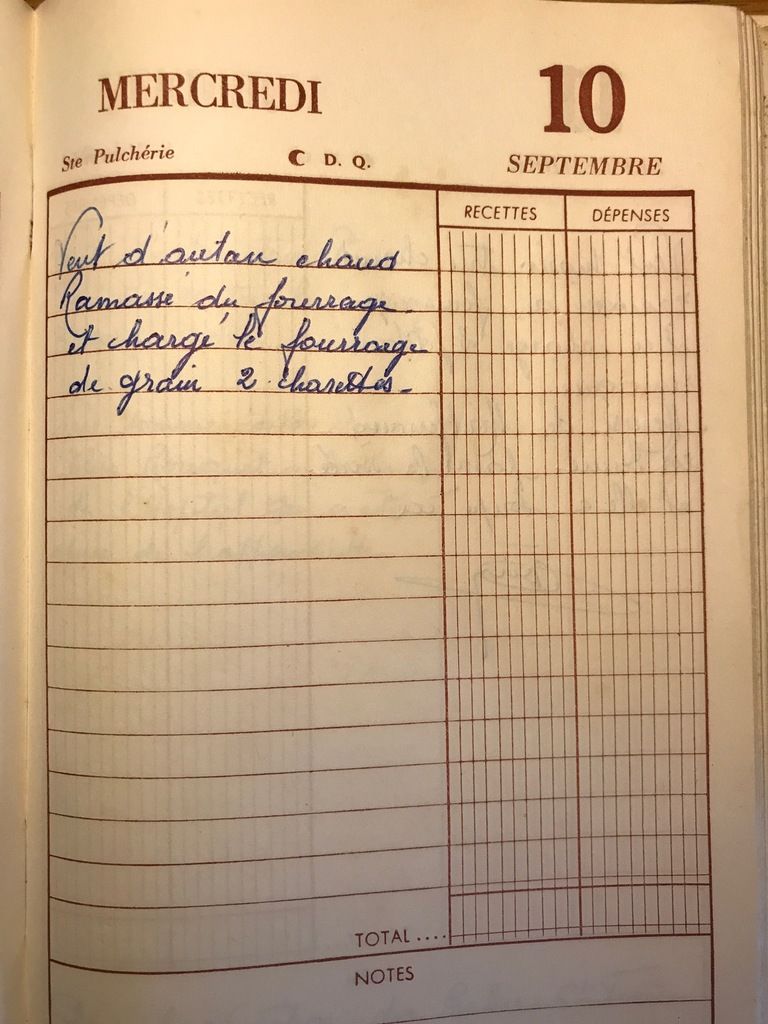 MERCREDI 10
Ste Pulchérie ☾ D. Q. SEPTEMBRE
RECETTES DÉPENSES
Vent d'autan chaud
Ramassé du fourrage
et chargé le fourrage
de grain 2 charettes -
TOTAL ....
NOTES